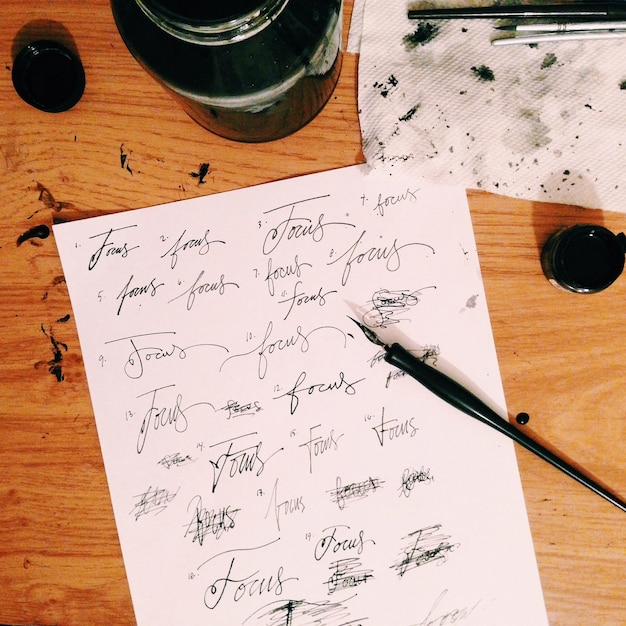 1. Focus 2. focus 3. Focus 4. focus
5. focus 6. focus 7. focus 8. focus
11. focus
9. Focus 10. focus
12. focus
13. Focus
14. Focus 15. Focus 16. Focus
17. focus
18. Focus 19. Focus
focus